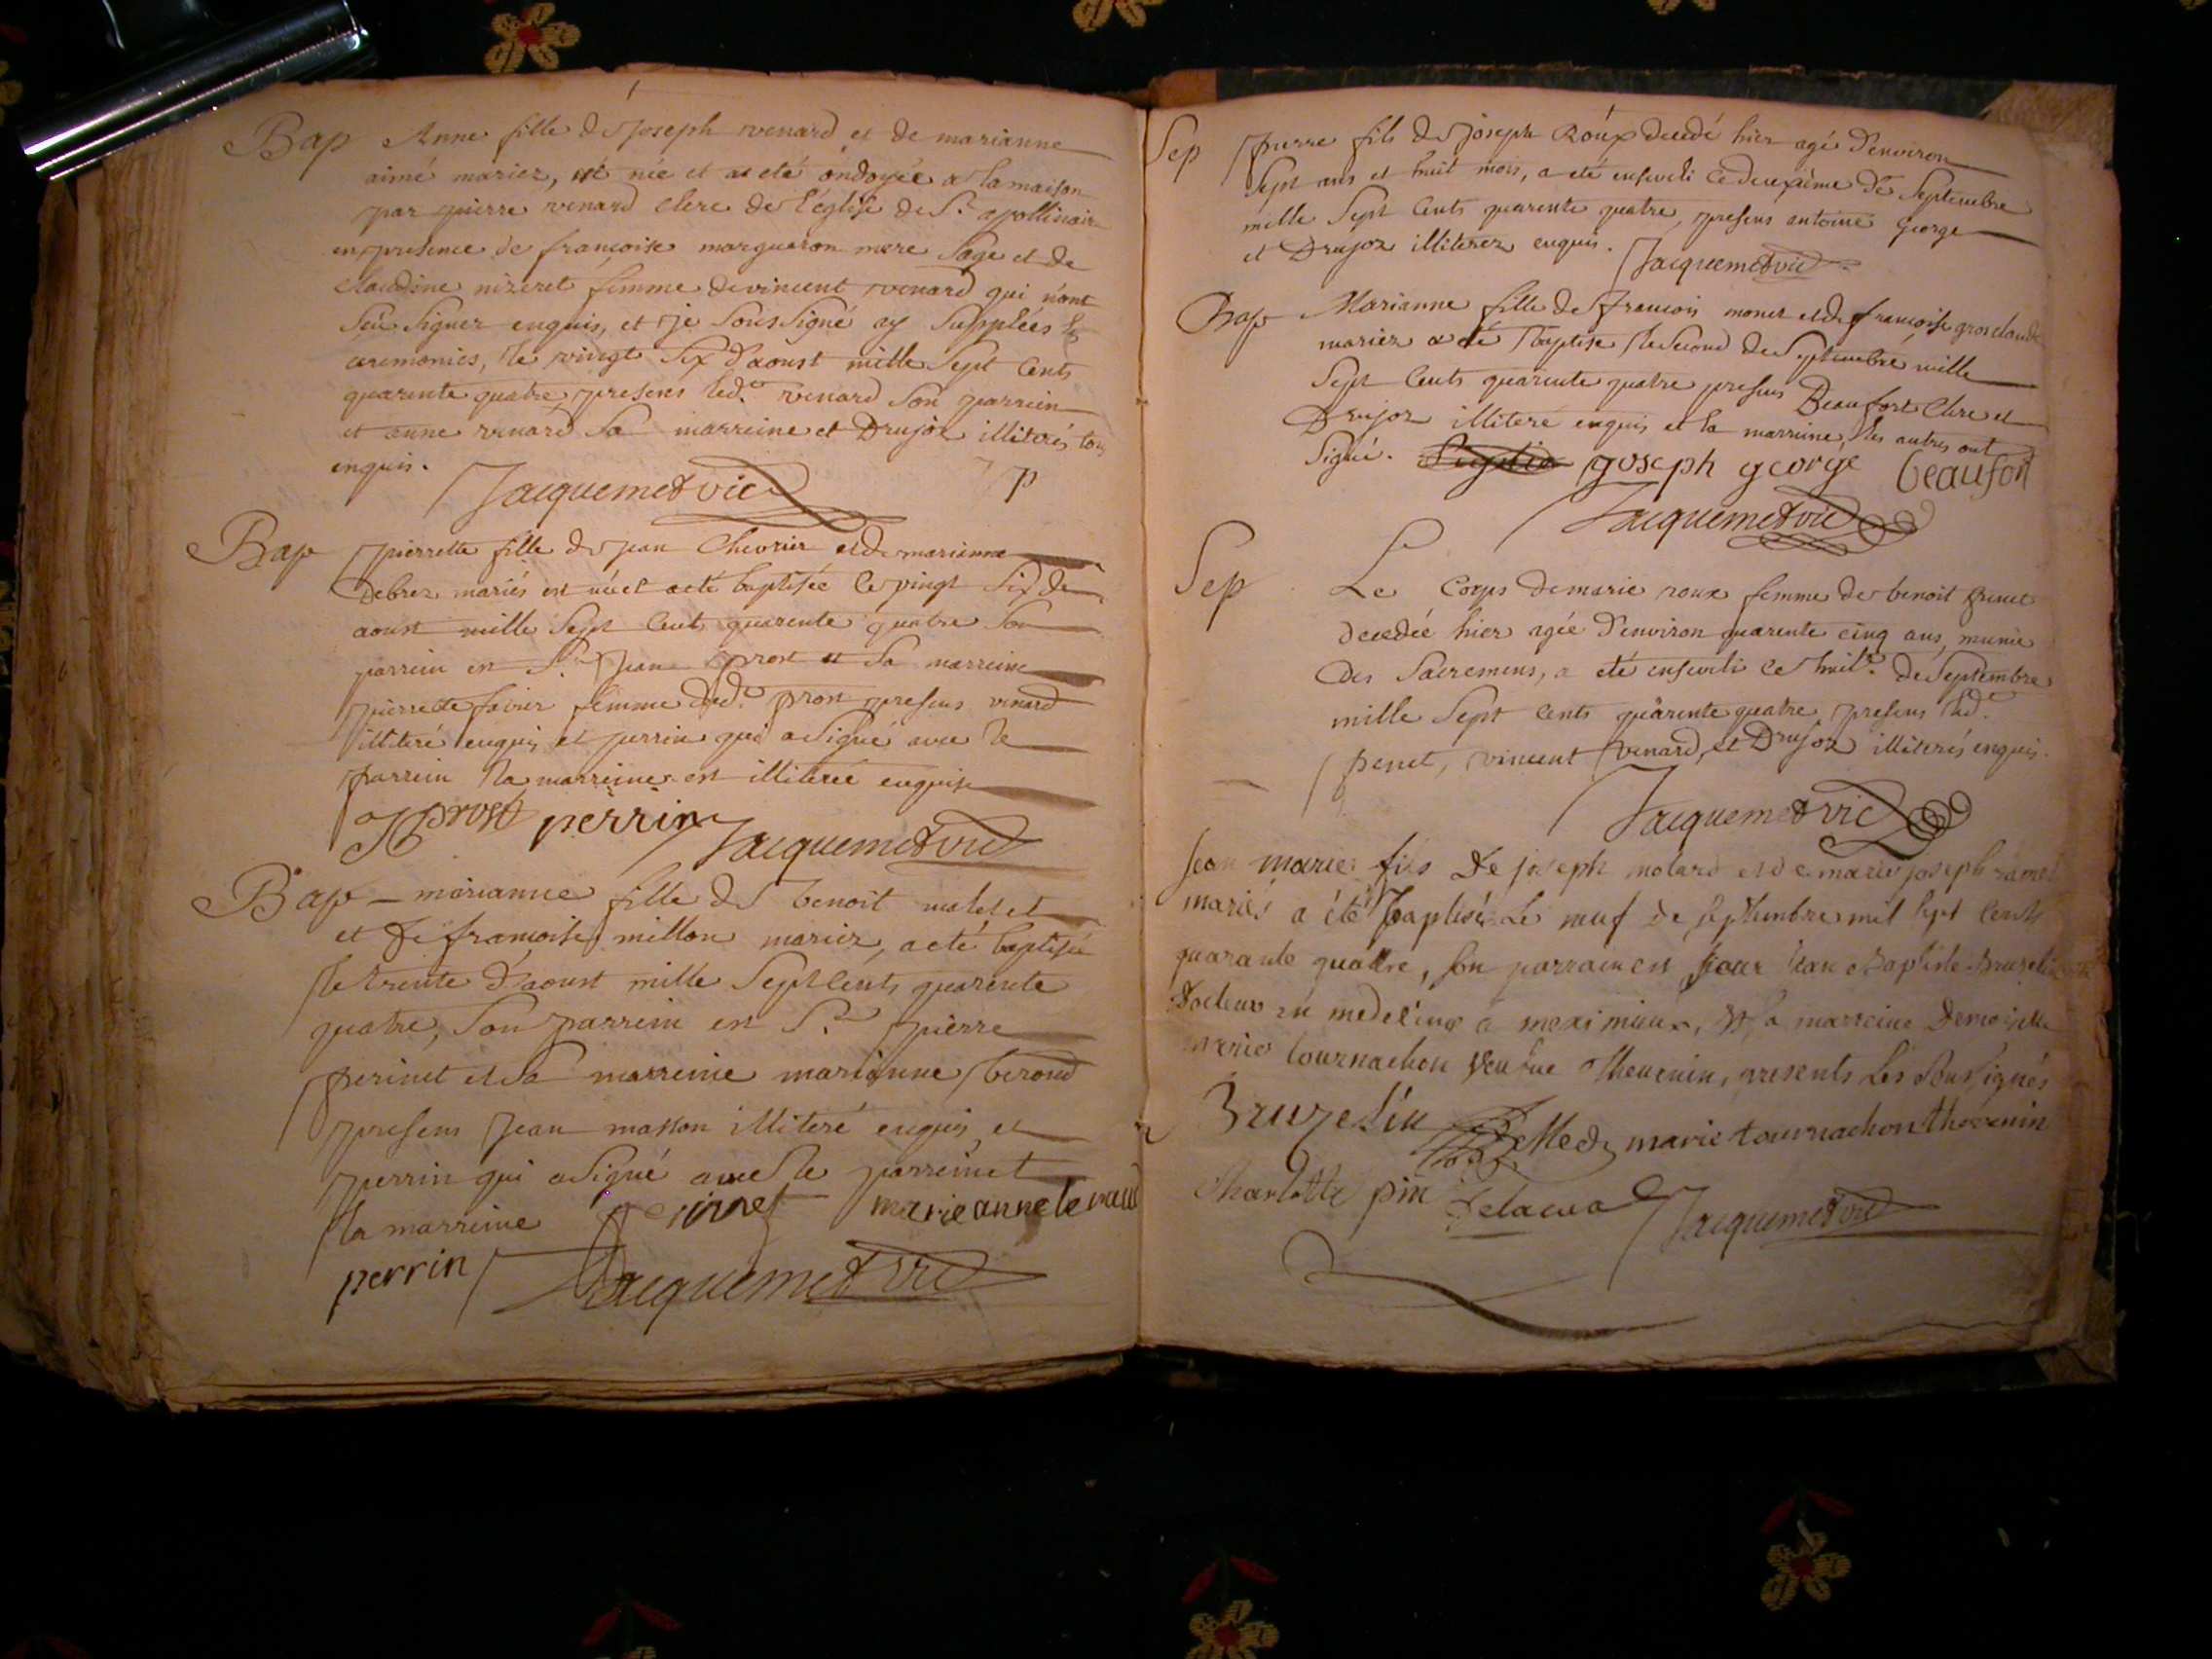 Bap Anne fille de Joseph venard et de marianne
aimé mariez, est née et a eté ondoyée a la maison
par pierre venard clerc de l'église de St. apollinaire
en presence de françoise margueron mere sage et de
claudine nizeret femme de vincent venard qui n'ont
seu signer enquis, et je soussigné ay supplées les
ceremonies, le vingt six d'aoust mille sept cents
quarente quatre, presens led. venard son parrein
et anne venard sa marreine et Drujoz illiterés tous
enquis.
Jacquemet vic
Bap pierrette fille de jean Chevrier et de marianne
Debrez mariés est née et a eté baptisée le vingt six de
aoust mille sept cent quarente quatre son
parrein est Sr. Jean prost et sa marreine
pierrette favier femme dud. prost presens venard
illiteré enquis et perrin qui a signé avec le
parrein la marreine est illiterée enquise
prost perrin Jacquemet vic
Bap marianne fille de benoit
et de françoise millon mariez, a eté baptisée
le trente d'aoust mille sept cents quarente
quatre, son parrein est Sr. pierre
perinet et sa marreine marianne
presens Jean masson illiteré enquis et
perrin qui a signé avec le parrein et
la marreine perinet marie anne
perrin Jacquemet vic
Sep pierre fils de joseph Roux decedé hier agé d'environ
sept ans et huit mois, a eté enseveli ce deuxième de septembre
mille sept cents quarente quatre, presens antoine george
et Drujoz illiterez enquis. Jacquemet vic
Bap Marianne fille de francois monet et de françoise grosclaude
mariez a eté baptise le second de septembre mille
sept cents quarente quatre presens Beaufort clerc et
Drujoz illiteré enquis et la marreine, les autres ont
signé. joseph george beaufort
Jacquemet vic
Sep Le Corps de marie roux femme de benoit penet
decedée hier agée d'environ quarente cinq ans, munie
des sacremens, a eté enseveli ce huit. de septembre
mille sept cents quarente quatre presens led.
penet, vincent venard, et Drujoz illiterés enquis.
Jacquemet vic
Jean marie fils de joseph molard et de marie joseph
mariés a été baptisé le neuf de septembre mil sept cents
quarante quattre, son parrain est sieur jean Baptiste Bruzelin
docteur en medecine a meximieux, et sa marreine demoiselle
marie tournachon veufue thevenin, presents les soussignés
Bruzelin Med marie tournachon thevenin
Charlotte pin Delacua Jacquemet vic